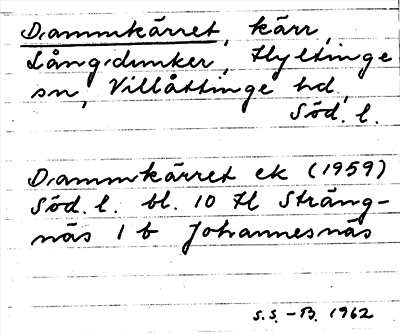 Dammkärret, kärr,
Långdunker, Hyltinge
sn, Villåttinge hd,
Söd. l.
Dammkärret ek (1959)
Söd. l. bl. 10 H Sträng-
näs 1 b Johannesnäs
S.S. - B. 1962